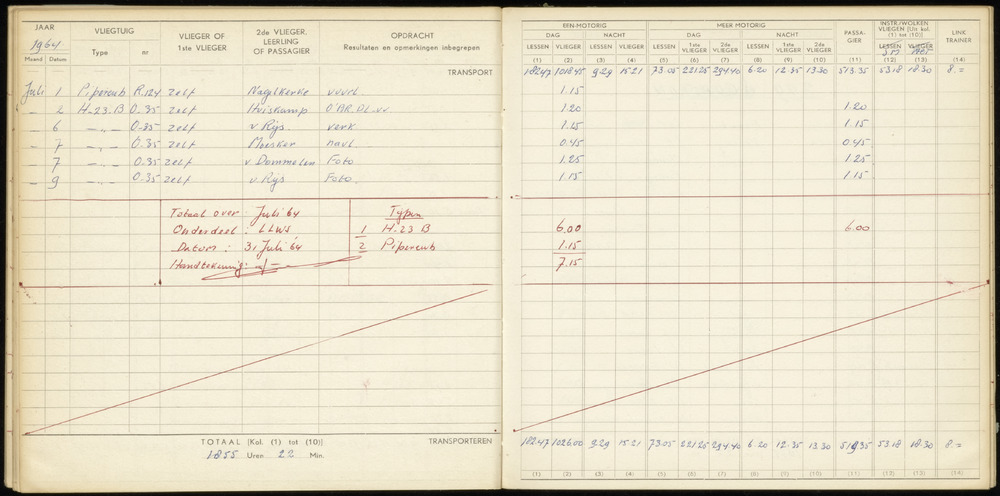 JAAR
1964
Maand Datum
VLIEGTUIG
Type nr
VLIEGER OF 1ste VLIEGER
2de VLIEGER. LEERLING OF PASSAGIER
OPDRACHT
Resultaten en opmerkingen inbegrepen
TRANSPORT
Juli 1 Pipercub R.124 zelf Nagelkerke
- 2 H-23.B 0-35 zelf Huiskamp
- 6 -"- 0-35 zelf v Rijs. verk
- 7 -"- 0.35 zelf Moesker navt
- 7 -"- 0.35 zelf v Dommelen Foto
- 9 -"- 0-35 zelf v Rijs Foto.
Totaal over Juli '64 Typen
Onderdeel: LLWS 1 H-23 B
Datum: 31 Juli '64 2 Pipercub
Handtekening: w/-
TOTAAL (Kol. (1) tot (10)) TRANSPORTEREN
1855 Uren 22 Min.
EEN-MOTORIG MEER MOTORIG
DAG NACHT DAG NACHT
PASSA-GIER
INSTR./WOLKEN VLIEGEN (Uit kol. (1) tot (10))
LINK TRAINER
LESSEN VLIEGER LESSEN VLIEGER LESSEN 1ste VLIEGER 2de VLIEGER LESSEN 1ste VLIEGER 2de VLIEGER LESSEN VLIEGER
(1) (2) (3) (4) (5) (6) (7) (8) (9) (10) (11) (12) (13) (14)
182.47 1018.45 9.29 15.21 73.05 221.25 294.40 6.20 12.35 13.30 513.35 53.18 18.30 8.=
1.15
1.20 1.20
1.15 1.15
0.45 0.45
1.25 1.25
1.15 1.15
6.00 6.00
1.15
7.15
182.47 1026.00 9.29 15.21 73.05 221.25 294.40 6.20 12.35 13.30 519.35 53.18 18.30 8.=
(1) (2) (3) (4) (5) (6) (7) (8) (9) (10) (11) (12) (13) (14)